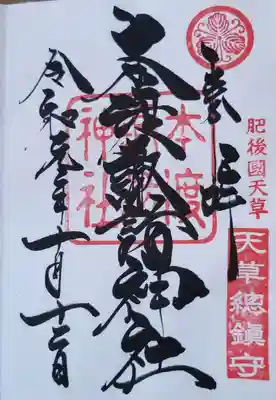 奉拝
肥後國天草
天草總鎮守
本渡諏訪神社
本渡
神社
令和元年十月十二日